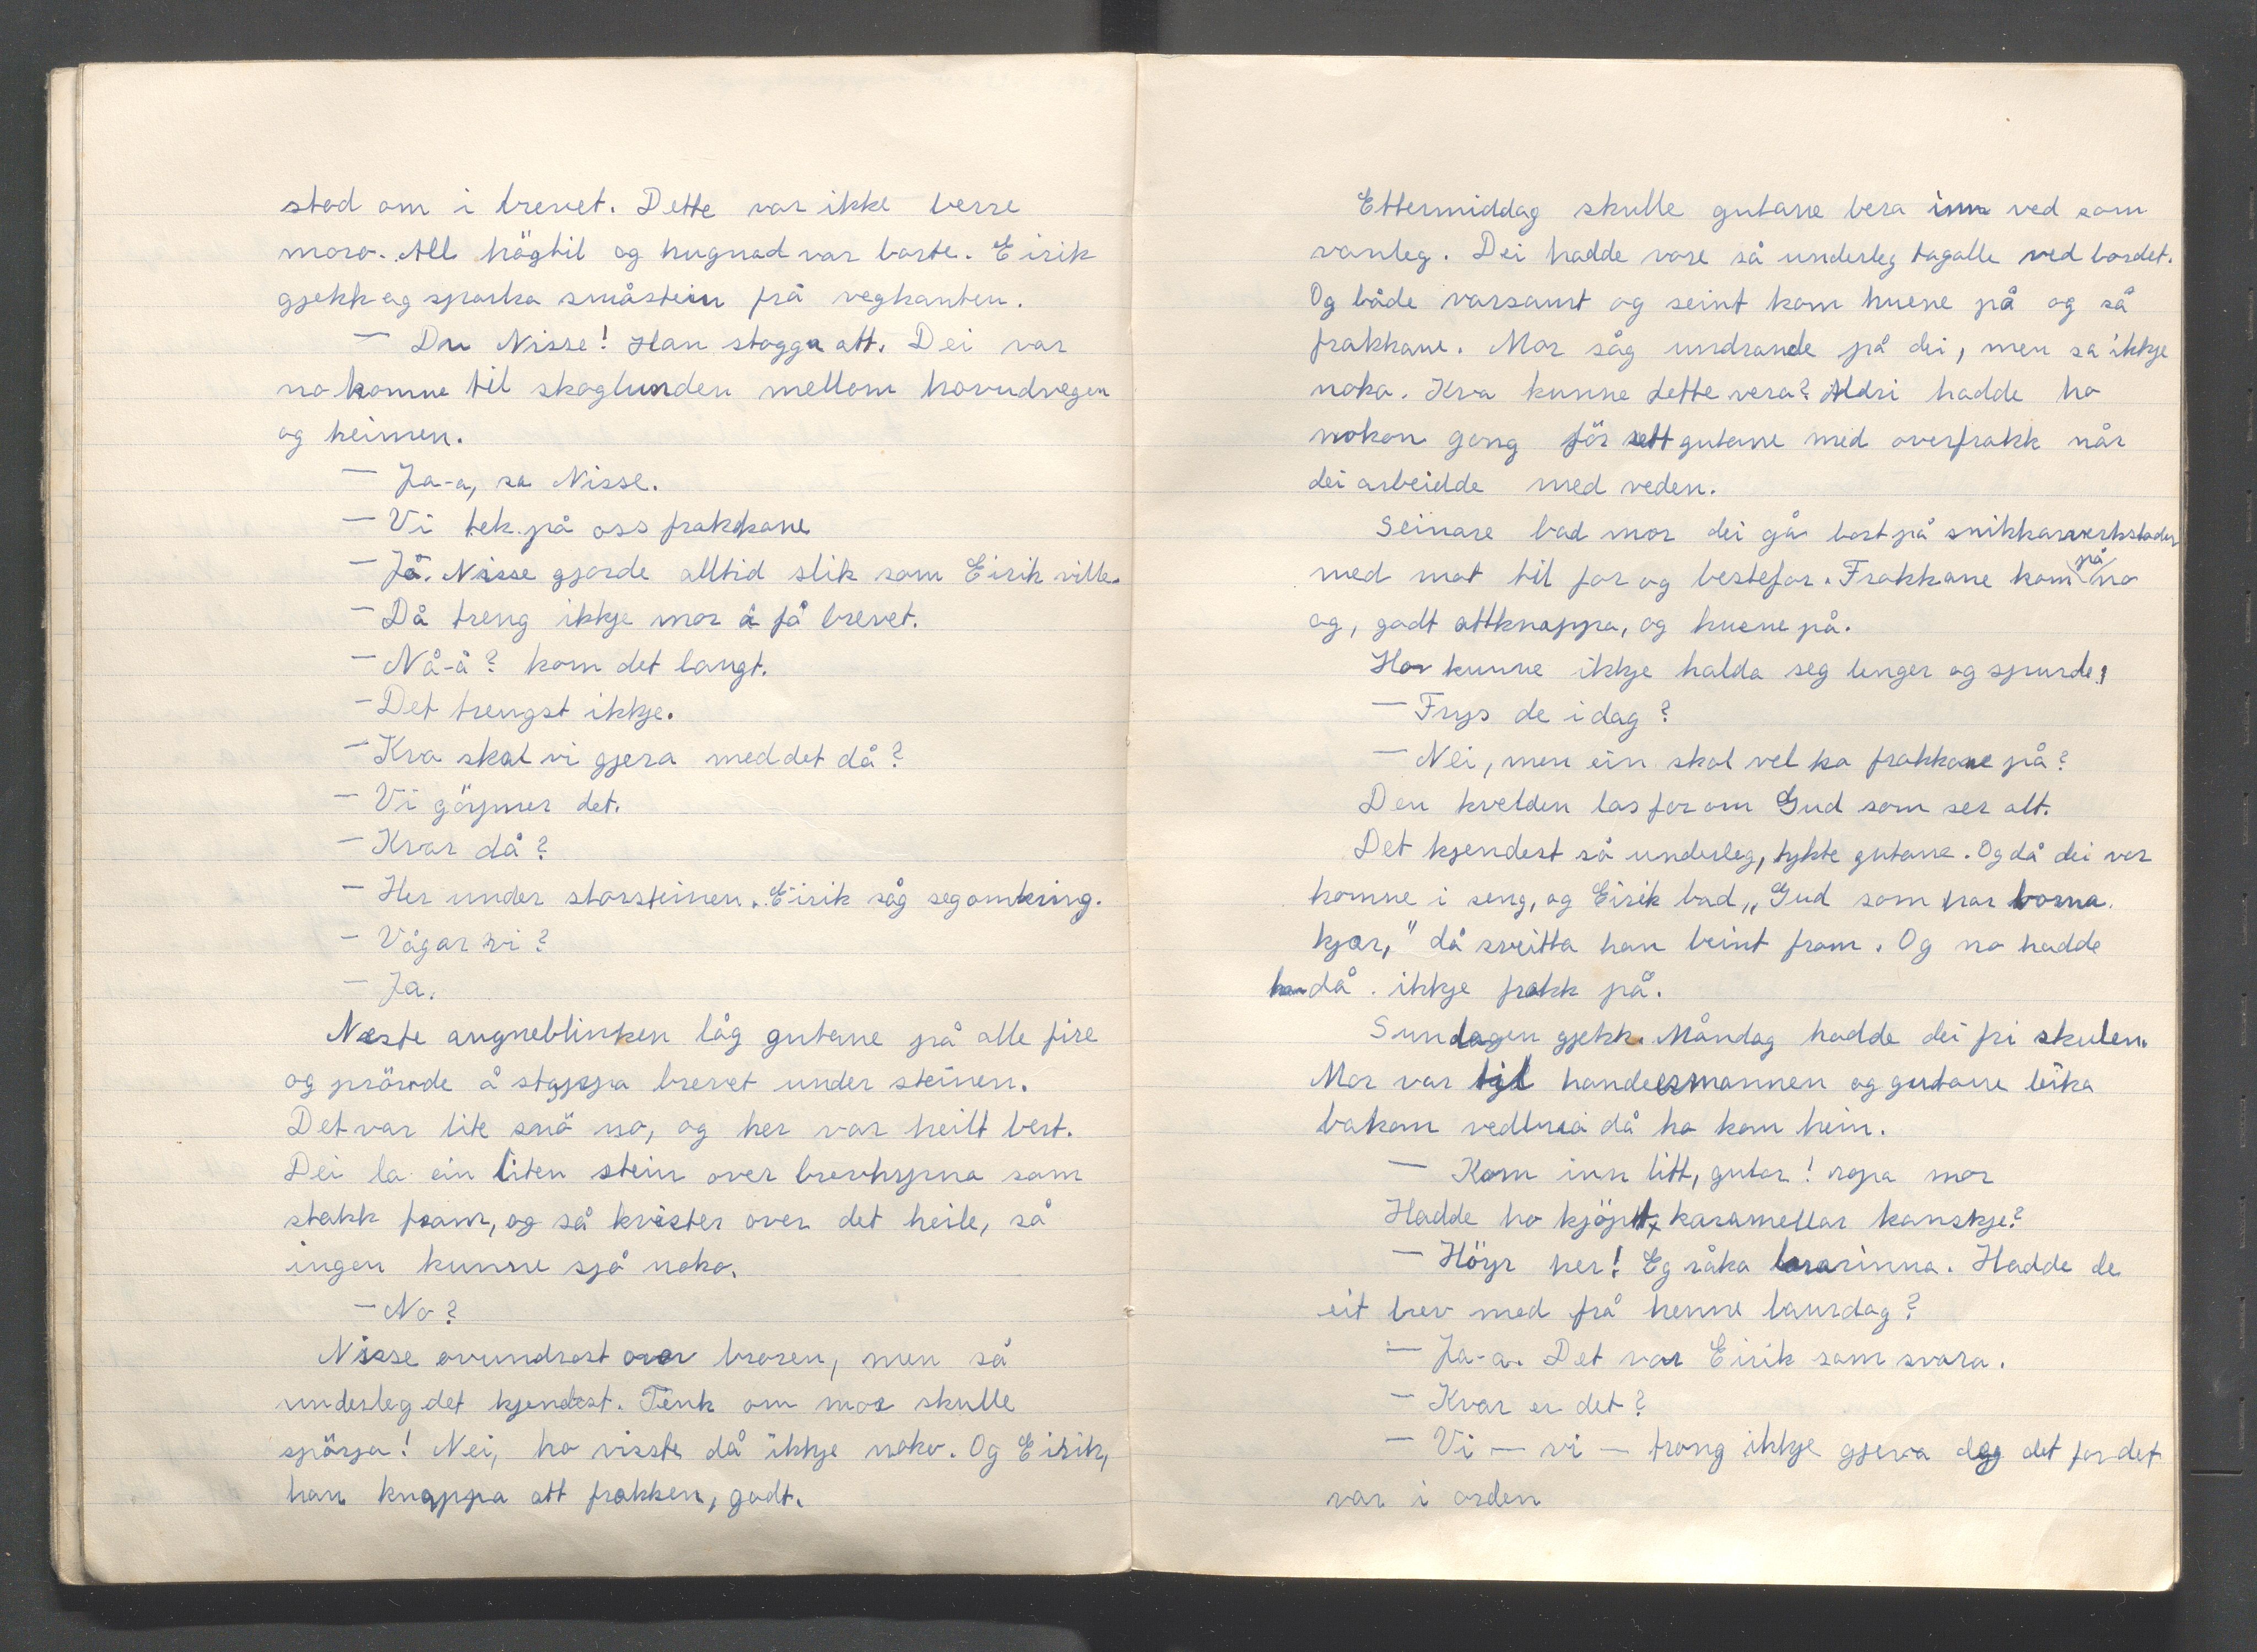 stod om i brevet. Dette var ikke berre
moro. All högtil og hugnad var borte. Eirik
gjekk og sparka småstein frå vegkanten.
— Du Nisse! Han stogga att. Dei var
no komne til skoglunden mellom hovudvegen
og heimen.
— Ja-a, sa Nisse.
— Vi tek på oss frakkane
— Ja. Nisse gjorde alltid slik som Eirik ville.
— Då treng ikkje mor å få brevet.
— Nå-å? kom det langt.
— Det trengst ikkje.
— Kva skal vi gjera med det då?
— Vi göymer det.
— Kvar då?
— Her under storsteinen. Eirik såg seg omkring.
— Vågar vi?
— Ja.
Næste augneblinken låg gutane på alle fire
og prövde å stappa brevet under steinen.
Det var lite snö no, og her var heilt bert.
Dei la ein liten stein over brevhyrna som
stakk fram, og så kvister over det heile, så
ingen kunne sjå noko.
— No?
Nisse ovundrast over broren, men så
underleg det kjendest. Tenk om mor skulle
spörja! Nei, ho visste då ikkje noko. Og Eirik,
han knappa att frakken, godt.
Ettermiddag skulle gutane bera inn ved som
vanleg. Dei hadde vore så underleg tagalle ved bordet.
Og både varsamt og seint kom huene på og så
frakkane. Mor såg undrande på dei, men sa ikkje
noko. Kva kunne dette vera? Aldri hadde ho
nokon gong för sett gutane med overfrakk når
dei arbeidde med veden.
Seinare bad mor dei gå bort på snikkarverkstaden
med mat til far og bestefar. Frakkane kom på no
og, godt attknappa, og huene på.
Ho kunne ikkje halda seg lenger og spurde,
— Frys de i dag?
— Nei, men ein skal vel ha frakkane på?
Den kvelden las far om Gud som ser alt.
Det kjendest så underleg, tykte gutane. Og då dei var
komne i seng, og Eirik bad „Gud som har borna
kjær," då sveitta han beint fram. Og no hadde
han då ikkje frakk på.
Sundagen gjekk. Måndag hadde dei fri skulen.
Mor var til handelsmannen og gutane leika
bakom vedbua då ho kom heim.
— Kom inn litt, gutar! ropa mor
Hadde ho kjöpt karamellar kanskje?
— Höyr her! Eg råka lærarinna. Hadde de
eit brev med frå henne laurdag?
— Ja-a. Det var Eirik som svara.
— Kvar er det?
— Vi — vi — trong ikkje gjeva deg det for det
var i orden